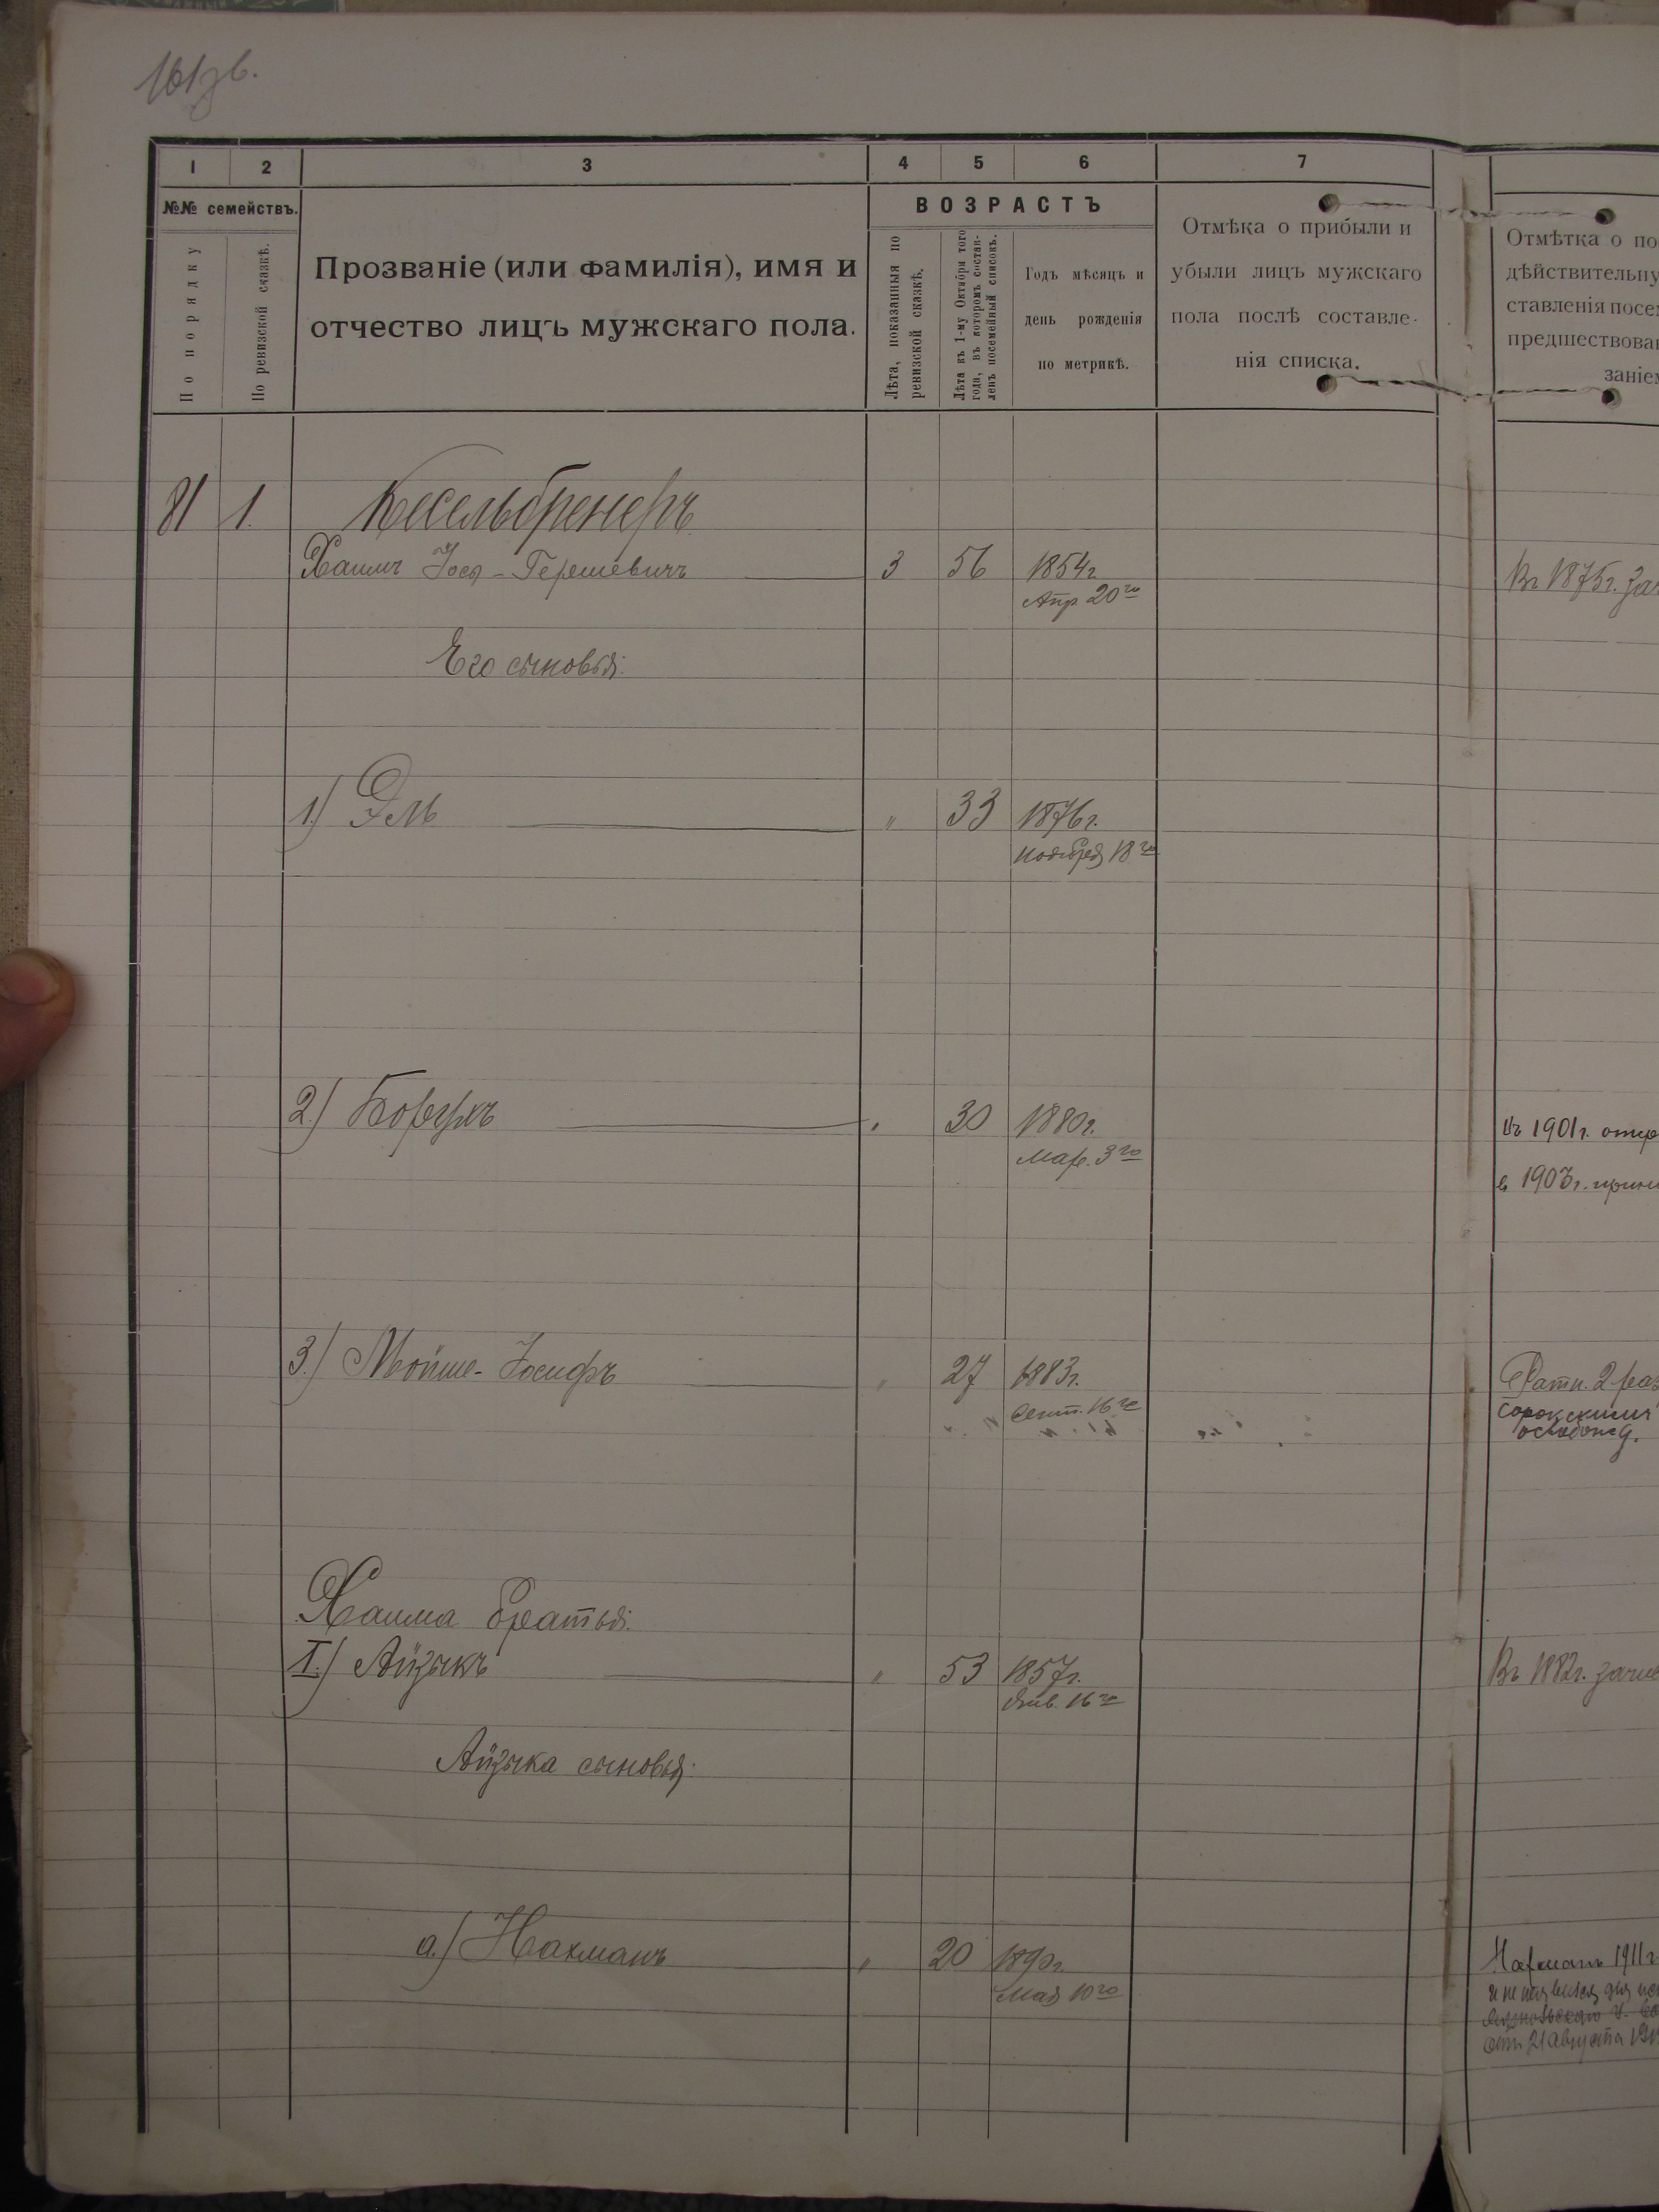 161об.
1 2 3 4 5 6 7
№№ семействъ.
По порядку
По ревизской сказкѣ.
Прозваніе (или фамилія), имя и
отчество лицъ мужскаго пола.
ВОЗРАСТЪ
Лѣта, показанныя по
ревизской сказкѣ.
Лѣта къ 1-му Октября того
года, въ которомъ состав-
ленъ посемейный списокъ.
Годъ мѣсяцъ и
день рожденія
по метрикѣ.
Отмѣка о прибыли и
убыли лицъ мужскаго
пола послѣ составле-
нія списка.
Отмѣтка о по
дѣйствительну
ставленія посем
предшествовав
заніем
81 1. Кесельбренеръ
Хаимъ Іося-Гершевичъ 3 56 1854г. Въ 1875г. зач
Апр. 20го
Его сыновья:
1.) Эль " 33 1876г.
Ноября 18го
2.) Борухъ " 30 1880г. Въ 1901г. отср
Мар. 3го
в 1903г. прин
3.) Мойше-Іосифъ " 27 1883г. Ратн. 2 раз
Сент. 16го Сорокскимъ
освобожд.
Хаима братья:
I.) Айзыкъ " 53 1857г. Въ 1882г. зачис
Янв. 16го
Айзыка сыновья:
а.) Нахманъ " 20 1890г. Нахманъ 1911г
Мая 10го и не явился для
отъ 21 Августа 191